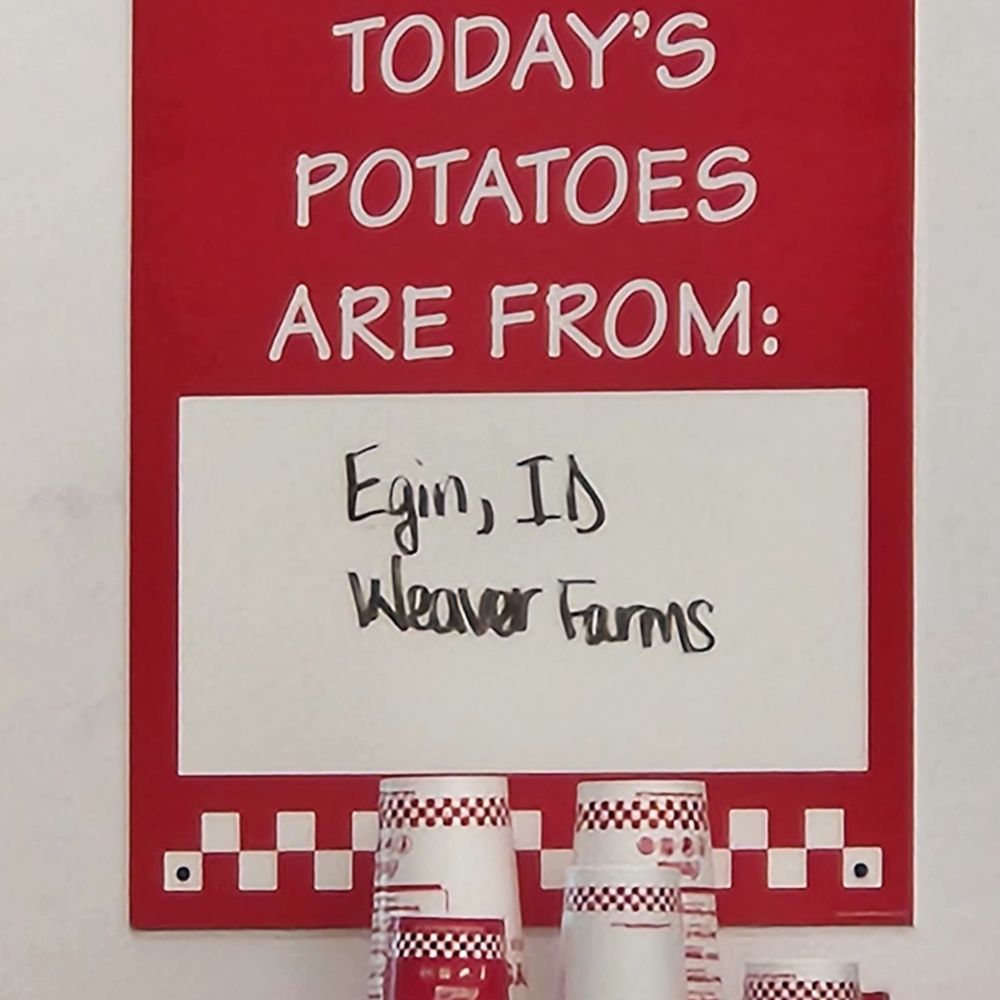 TODAY'S
POTATOES
ARE FROM:
Egin, ID
Weaver Farms